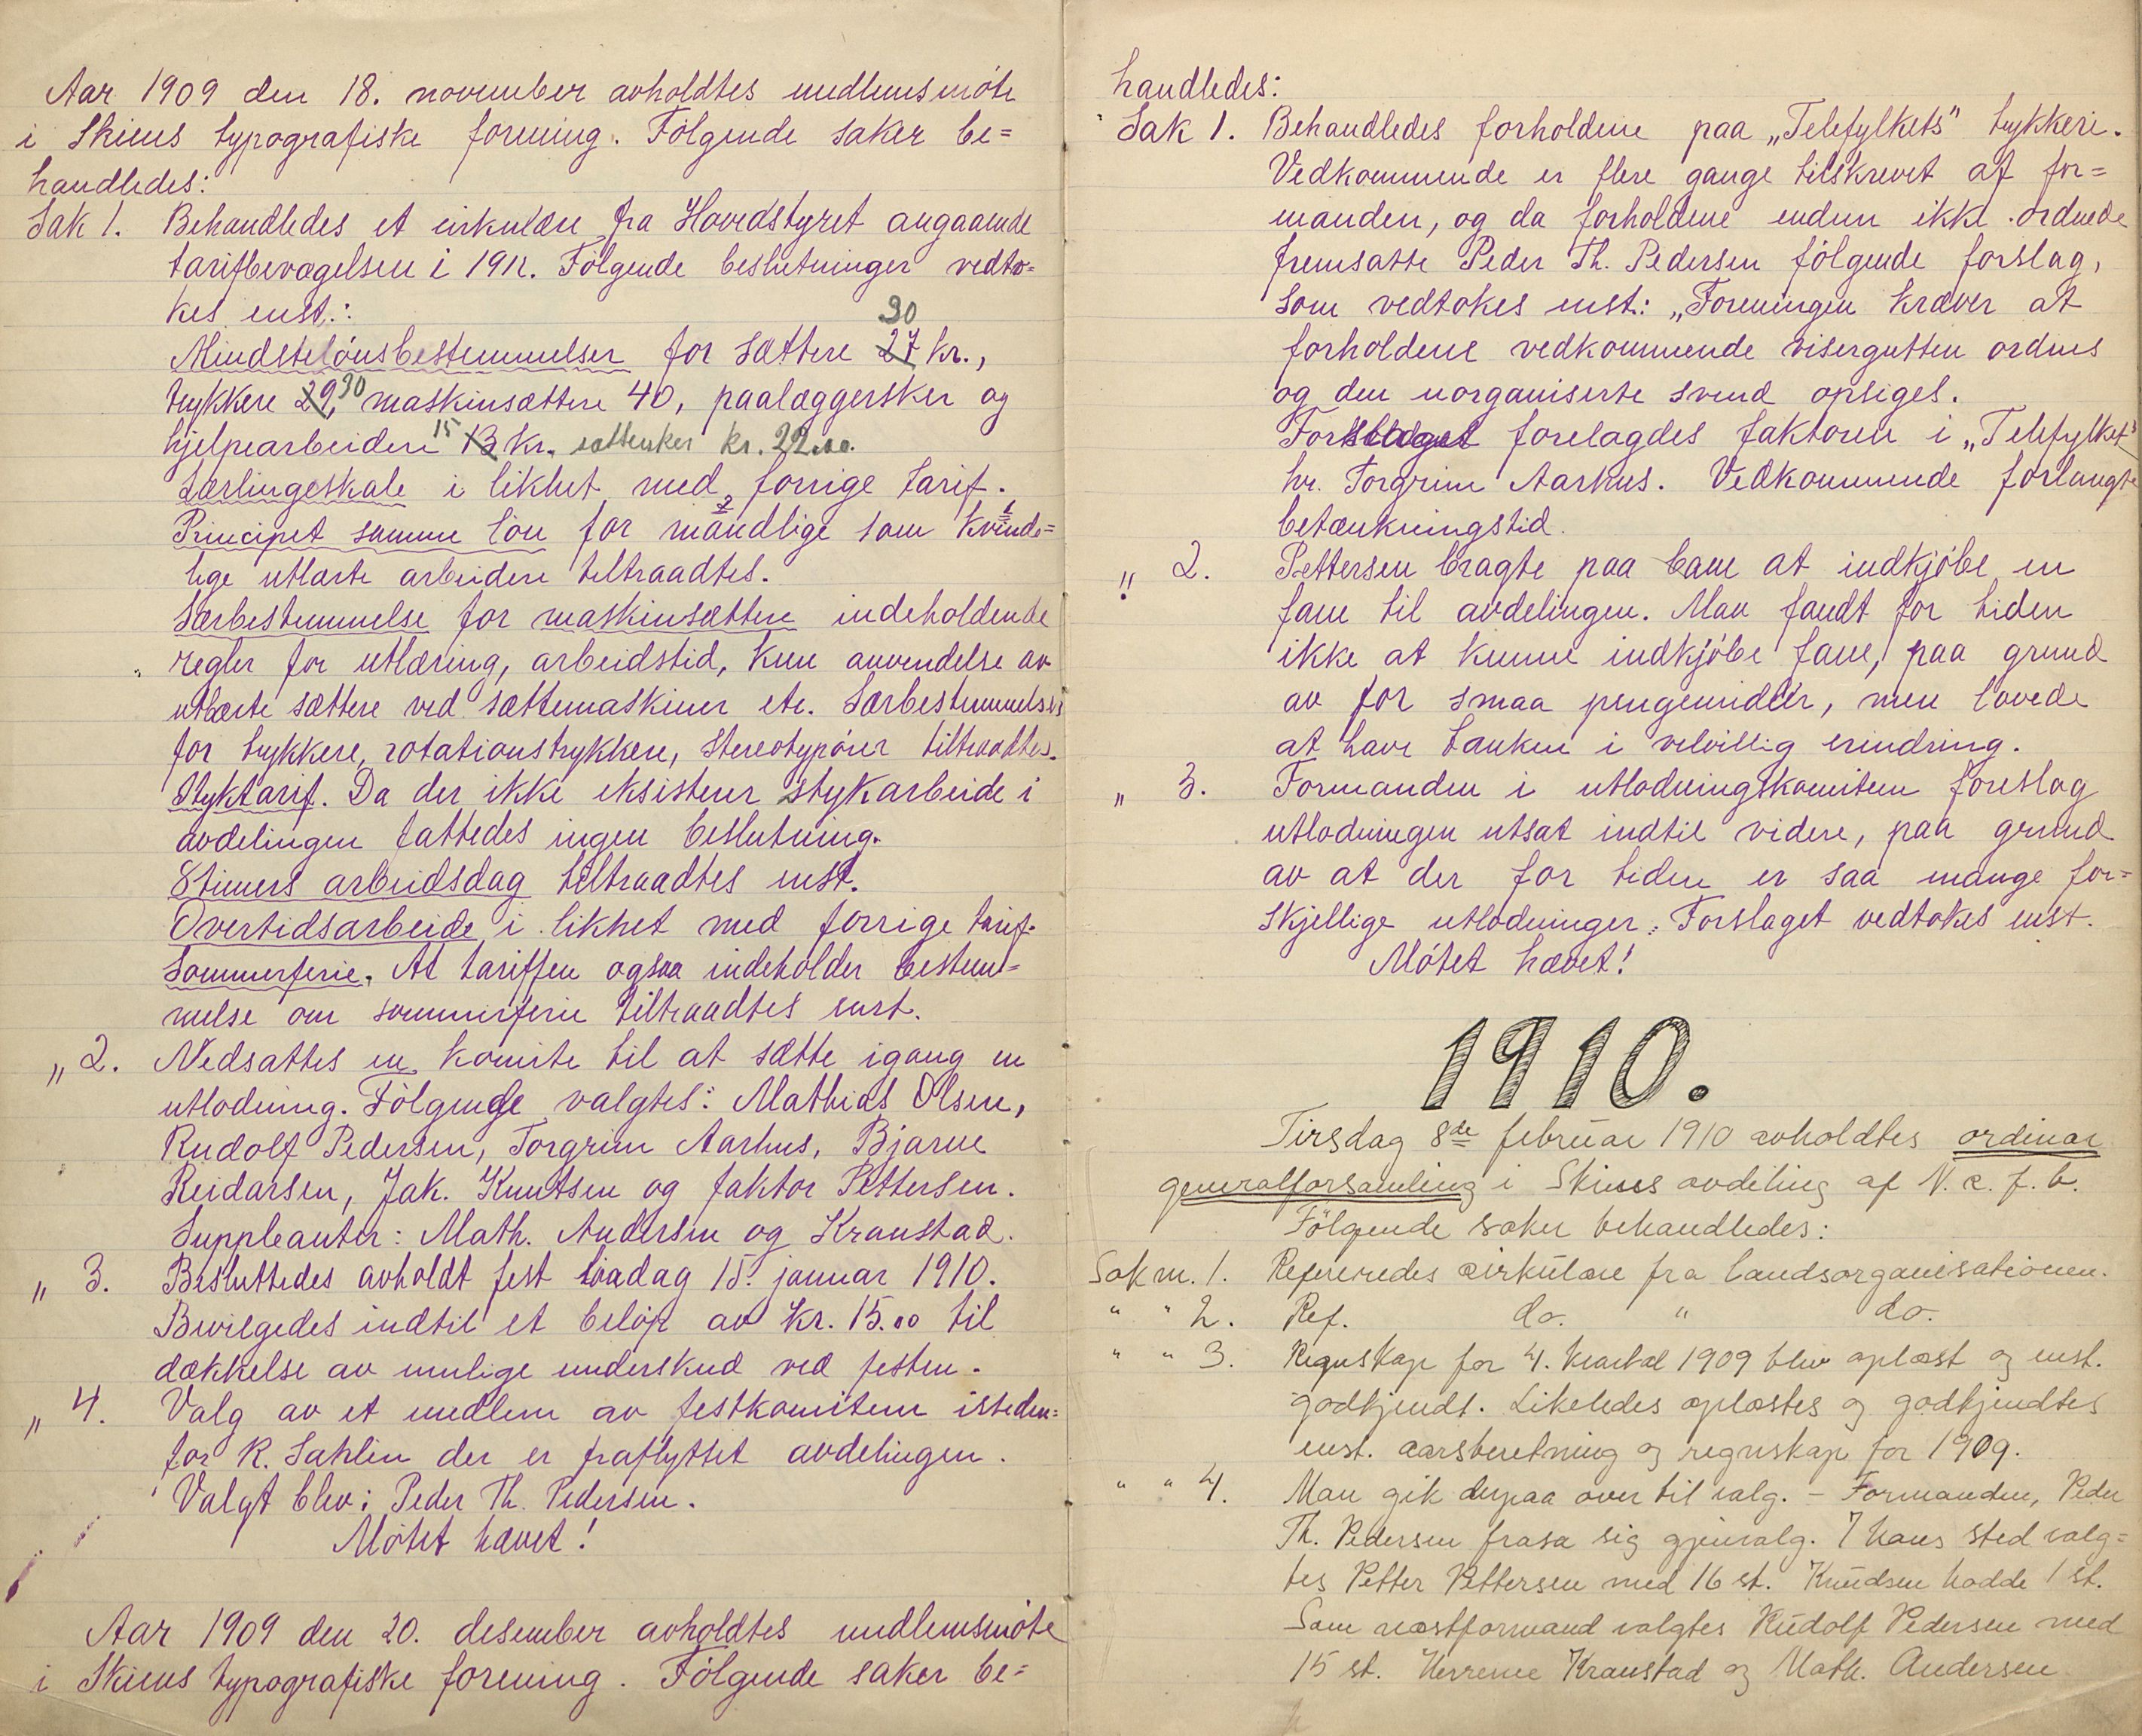 Aar 1909 den 18. november avholdtes medlemsmöte
i Skiens typografiske forening. Fölgende saker be=
handledes:
Sak 1. Behandledes et cirkulære fra Hovedstyret angaaende
tarifbevægelsen i 1911. Fölgende beslutninger vedto=
kes enst.:
30
Mindstelönsbestemmelser for sættere 27 kr.,
trykkere 29, 30 maskinsættere 40, paalæggersker og
hjelpearbeidere 15 13 kr. sættersker kr. 22.00.
Lærlingeskala i likhet med forrige tarif.
Principet samme lön for mandlige 2 som kvinde= 1
lige utlærte arbeidere tiltraadtes.
Særbestemmelse for maskinsættere indeholdende
regler for utlæring, arbeidstid, kun anvendelse av
utlærte sættere ved sættemaskiner etc. Særbestemmelser
for trykkere, rotationstrykkere, stereotypörer tiltraadtes.
Styktarif. Da der ikke eksisterer stykarbeide i
avdelingen fattedes ingen beslutning.
8timers arbeidsdag tiltraadtes enst.
Overtidsarbeide i likhet med forrige tarif.
Sommerferie. At tariffen ogsaa indeholder bestem=
melse om sommerferie tiltraadtes enst.
„ 2. Nedsattes en komite til at sætte igang en
utlodning. Fölgende valgtes: Mathias Olsen,
Rudolf Pedersen, Torgrim Aarhus, Bjarne
Reidarsen, Jak. Knutsen og faktor Pettersen.
Suppleanter: Math. Andersen og Kranstad.
„ 3. Besluttedes avholdt fest lördag 15. januar 1910.
Bevilgedes indtil et belöp av kr. 15.00 til
dækkelse av mulige underskud ved festen.
„ 4. Valg av et medlem av festkomiteen isteden=
for R. Sahlin der er fraflyttet avdelingen.
Valgt blev: Peder Th. Pedersen.
Mötet hævet!
Aar 1909 den 20. desember avholdtes medlemsmöte
i Skiens typografiske forening. Fölgende saker be=
handledes:
Sak 1. Behandledes forholdene paa „Telefylkets" trykkeri.
Vedkommende er flere gange tilskrevet af for=
manden, og da forholdene endnu ikke ordnede
fremsatte Peder Th. Pedersen fölgende forslag,
som vedtokes enst.: „Foreningen kræver at
forholdene vedkommende visergutten ordnes
og den uorganiserte svend opsiges.
Forslaget forelagdes faktoren i „Telefylket"
hr. Torgrim Aarhus. Vedkommende forlangte
betænkningstid.
„ 2. Pettersen bragte paa bane at indkjöbe en
fane til avdelingen. Man fandt for tiden
ikke at kunne indkjöbe fane, paa grund
av for smaa pengemidler, men lovede
at have tanken i velvillig erindring.
„ 3. Formanden i utlodningskomiteen foreslog
utlodningen utsat indtil videre, paa grund
av at der for tiden er saa mange for=
skjellige utlodninger. Forslaget vedtokes enst.
Mötet hævet!
1910.
Tirsdag 8de februar 1910 avholdtes ordinær
generalforsamling i Skiens avdeling af N. c. f. b.
Fölgende saker behandledes:
Sak nr. 1. Refereredes cirkulære fra landsorganisationen.
" " 2. Ref. do. " do.
" " 3. Regnskap for 4. kvartal 1909 blev oplæst og enst.
godkjendt. Likeledes oplæstes og godkjendtes
enst. aarsberetning og regnskap for 1909.
" " 4. Man gik derpaa over til valg. – Formanden, Peder
Th. Pedersen frasa sig gjenvalg. I hans sted valg=
tes Petter Pettersen med 16 st. Knudsen hadde 1 st.
Som næstformand valgtes Rudolf Pedersen med
15 st. Herrerne Kranstad og Math. Andersen